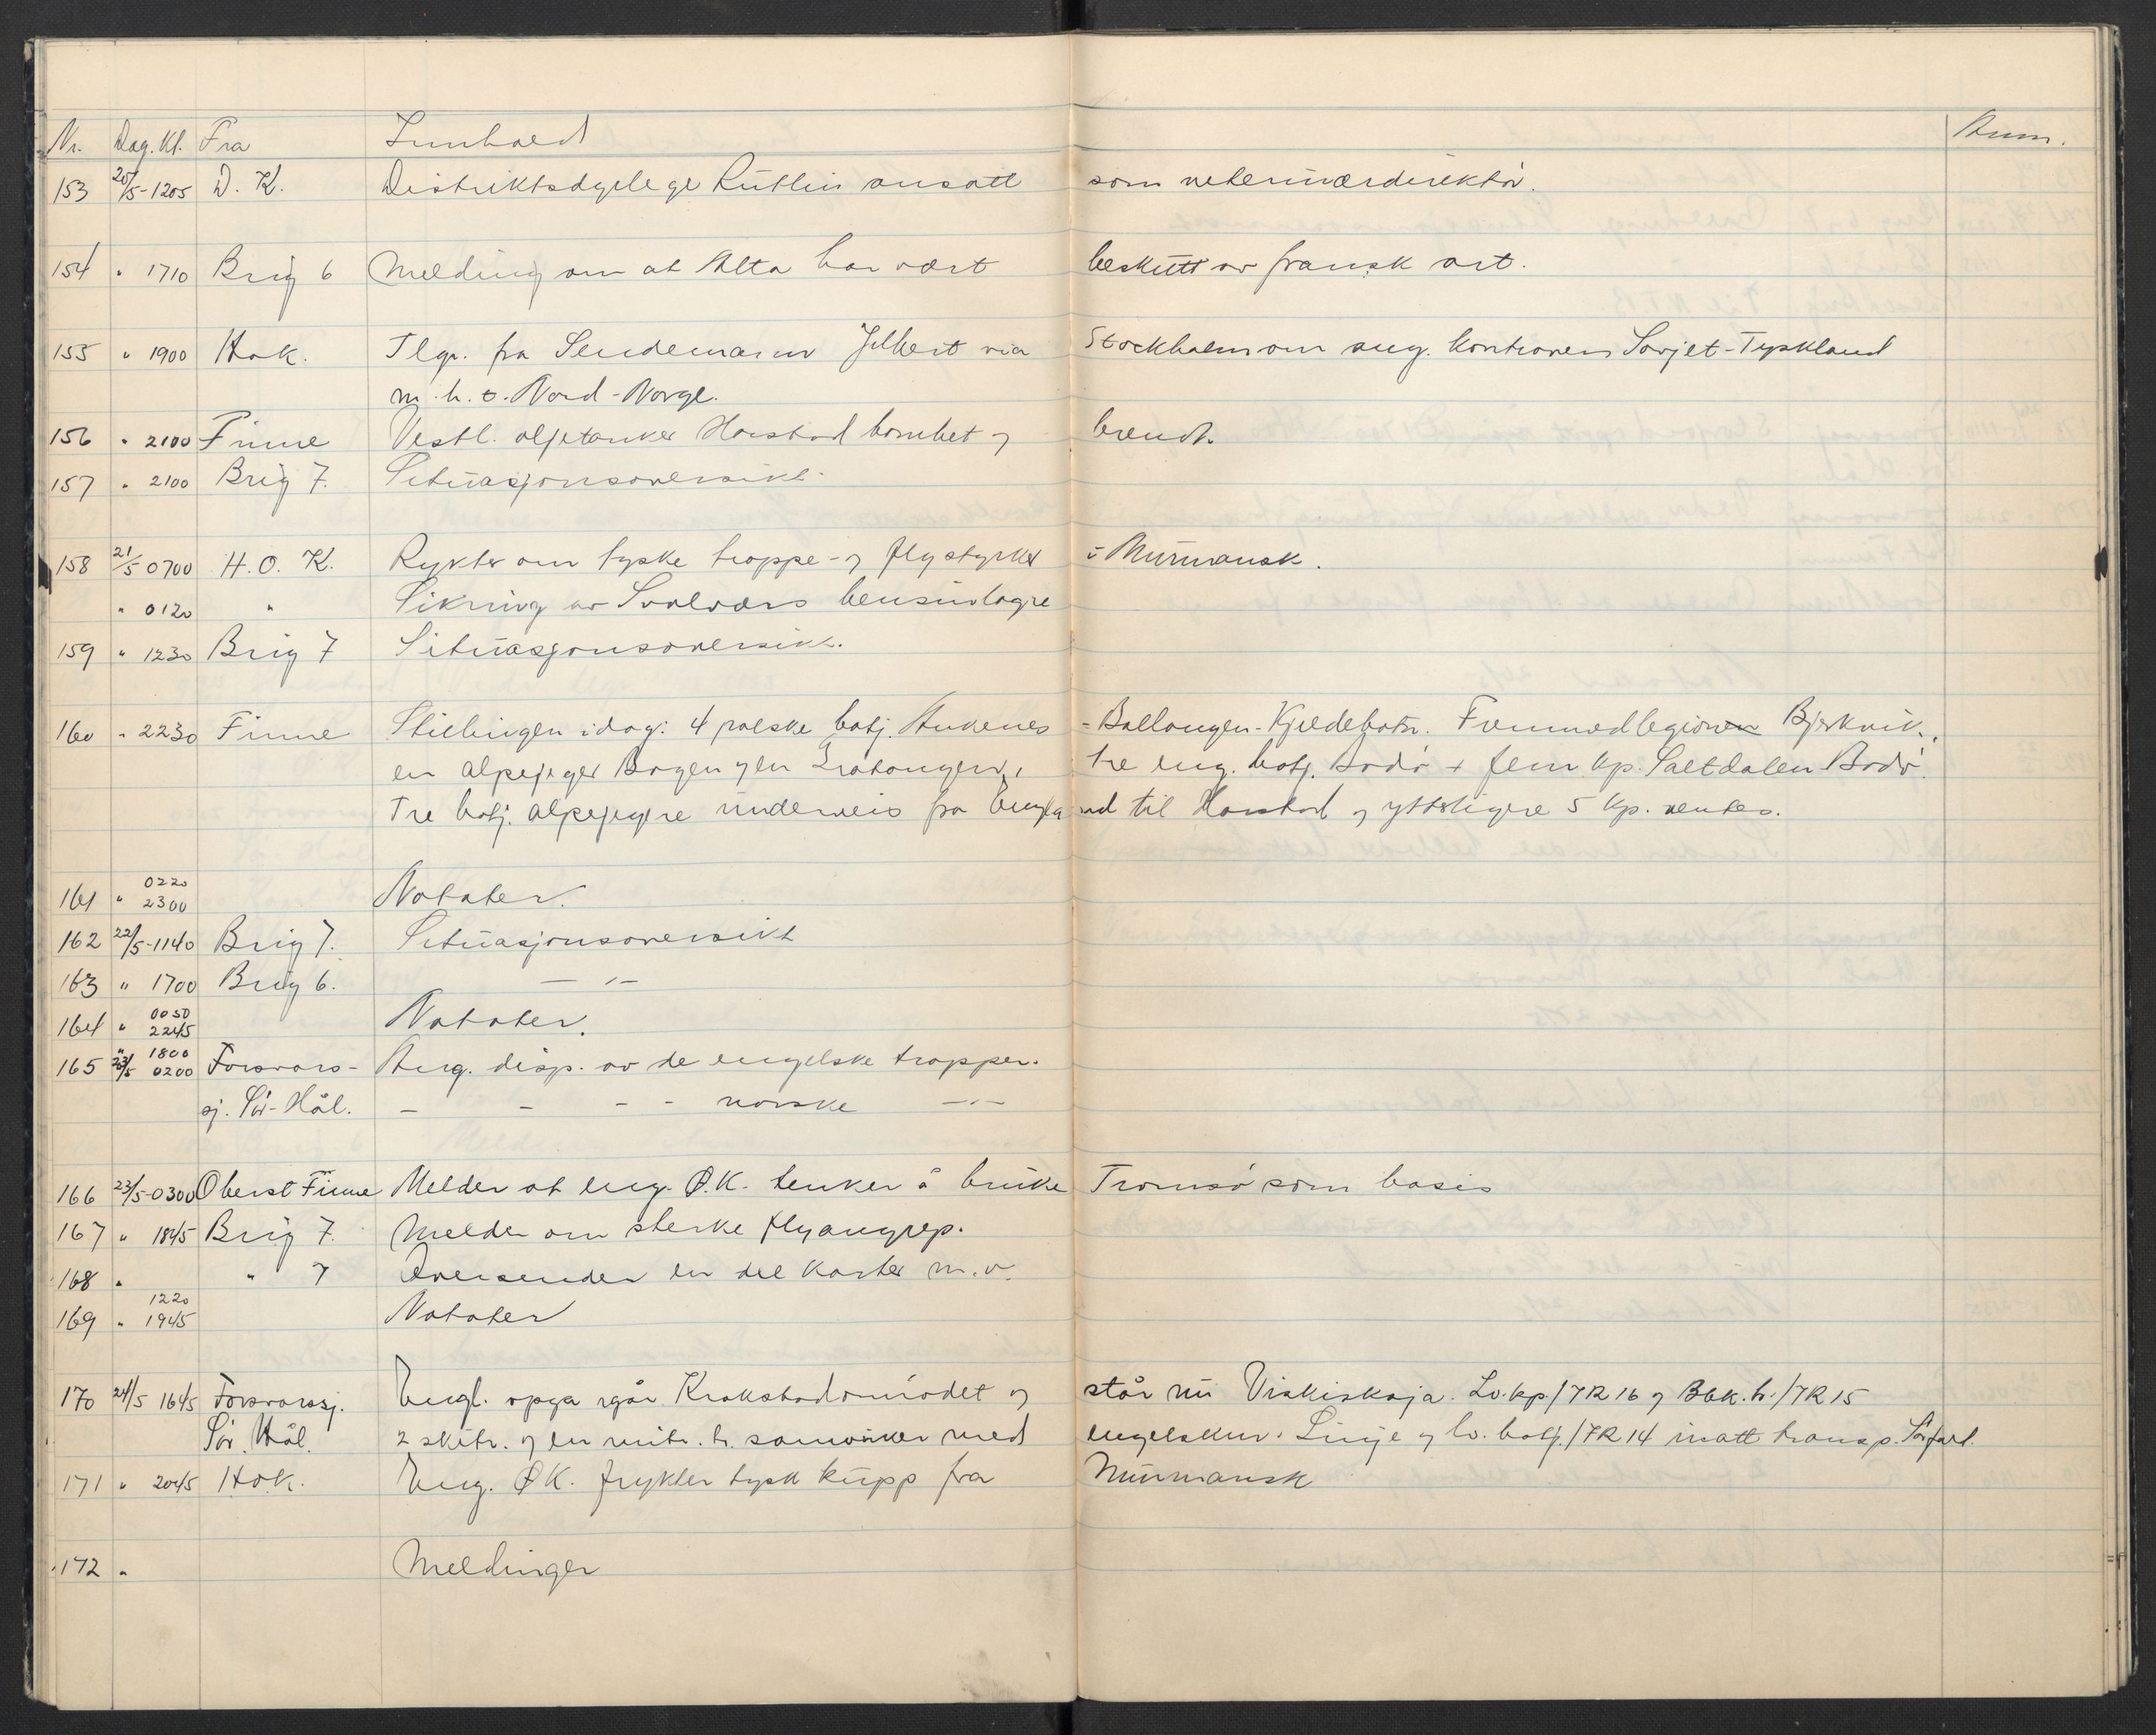 Nr. Dag. Kl. Fra Innhold Anm.
153 20/5-1205 D. K. Distriktsdyrlege ansatt som veterinærdirektör.
154 " 1710 Brig 6 Melding om at Alta har vært beskutt av fransk art.
155 " 1900 Hok. Tlgr. fra Sendemann via Stockholm om ang. Sovjet-Tyskland
m.h.t. Nord-Norge.
156 " 2100 Finne Vestl. oljetanker Harstad bombet og brendt.
157 " 2100 Brig 7. Situasjonsoversikt.
158 21/5 0700 H.O.K. Rykter om tyske troppe- og flystyrker i Murmansk.
" 0120 " Sikring av Svolværs bensinlagre
159 " 1230 Brig 7 Situasjonsoversikt.
160 " 2230 Finne Stillingen idag: 4 polske batj. Ankenes - Ballangen - Kjeldebotn. Fremmedlegionen Bjerkvik.,
en alpejeger Bogen og en Gratangen, tre eng. batj. Bodö + fem kp. Saltdalen Bodö.
Tre batj. alpejegre underveis fra England til Harstad og ytterligere 5 kp. ventes.
161 " 0220 2300 Notater.
162 22/5-1140 Brig 7. Situasjonsoversikt
163 " 1700 Brig 6. — " —
164 " 0050 2245 Notater.
165 " 1800 23/5 0200 Forsvars- Ang. disp. av de engelske tropper.
sj. Sör-Hål. — - - - norske — " —
166 23/5-0300 Oberst Finne Melder at eng. Ø.K. tenker å bruke Tromsö som basis
167 " 1845 Brig 7. Melder om sterke flyangrep.
168 " " 7 Oversender en del karter m.v.
169 " 1220 1945 Notater
170 24/5 1645 Forsvarssj. Engl. opga igår Krokstadområdet og står nu Viskiskoja. Lv.kp./IR 16 og Bbk.h./IR 15
Sör. Hål. 2 skitr. og en mitr. tr. samvirker med engelskm. Linje og lv. batj./IR 14 inatt transp.
171 " 2045 Hok. Eng. ØK. frykter tysk kupp fra Murmansk
172 " Meldinger